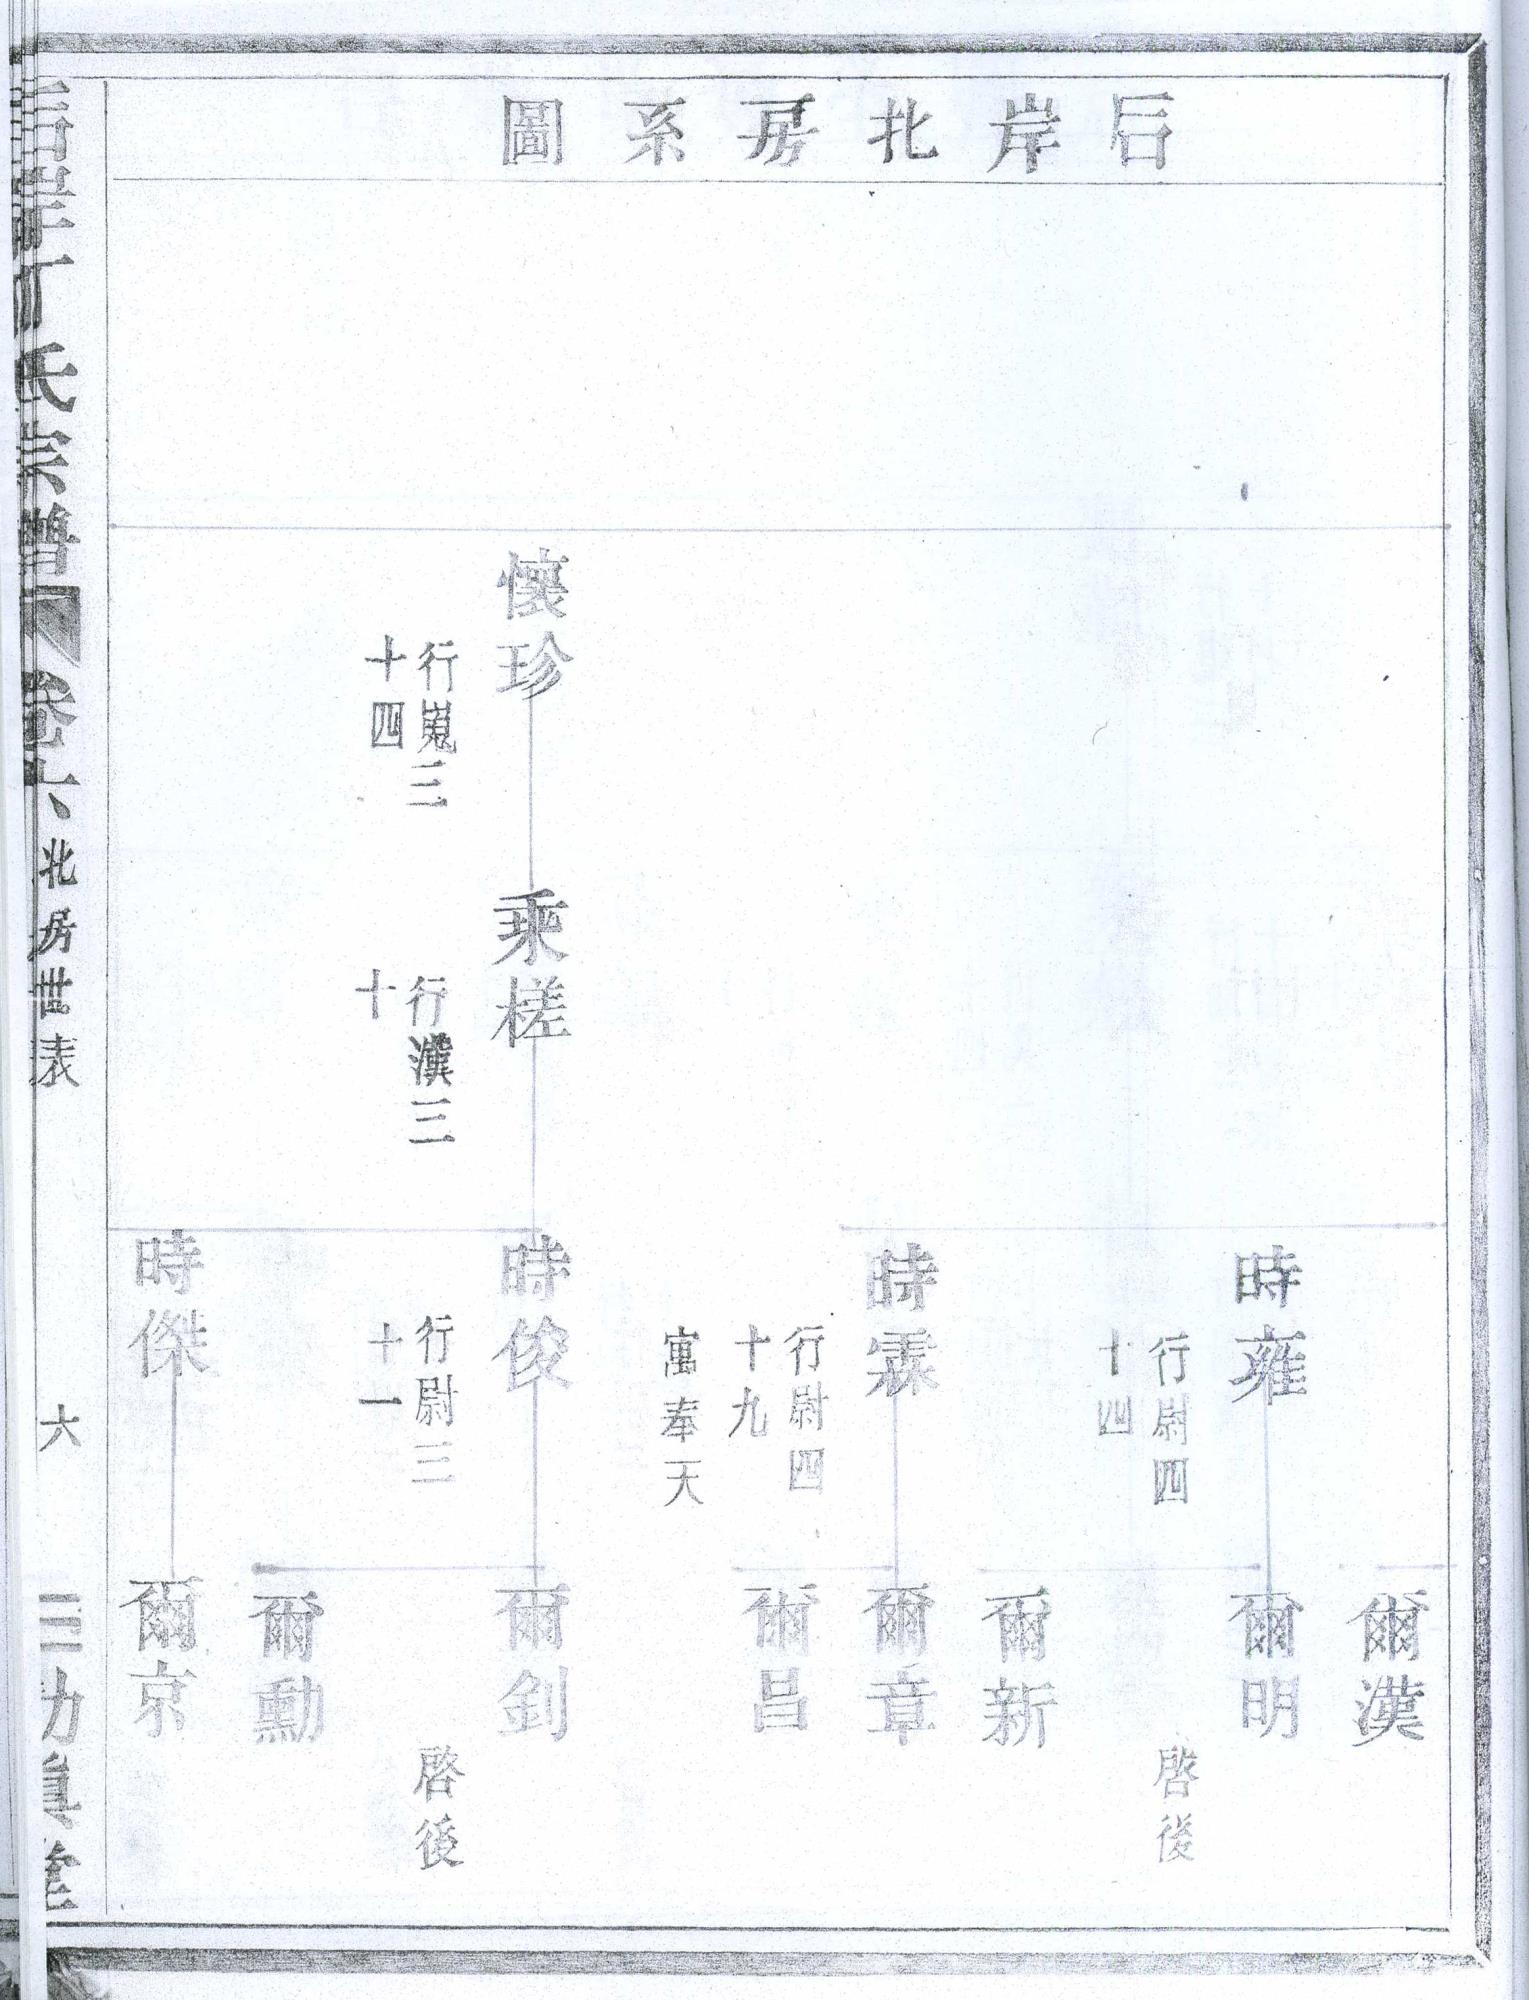 后岸北房系圖
懷珍
行嵬三
十四
乘槎
行漢三
十
時雍
行尉四
十四
時霖
行尉四
十九
寓奉天
時俊
行尉三
十一
時傑
爾漢
爾明
啓後
爾新
爾章
爾昌
爾釗
啓後
爾勳
爾京
后岸丁氏宗譜
卷六
北房世表
六